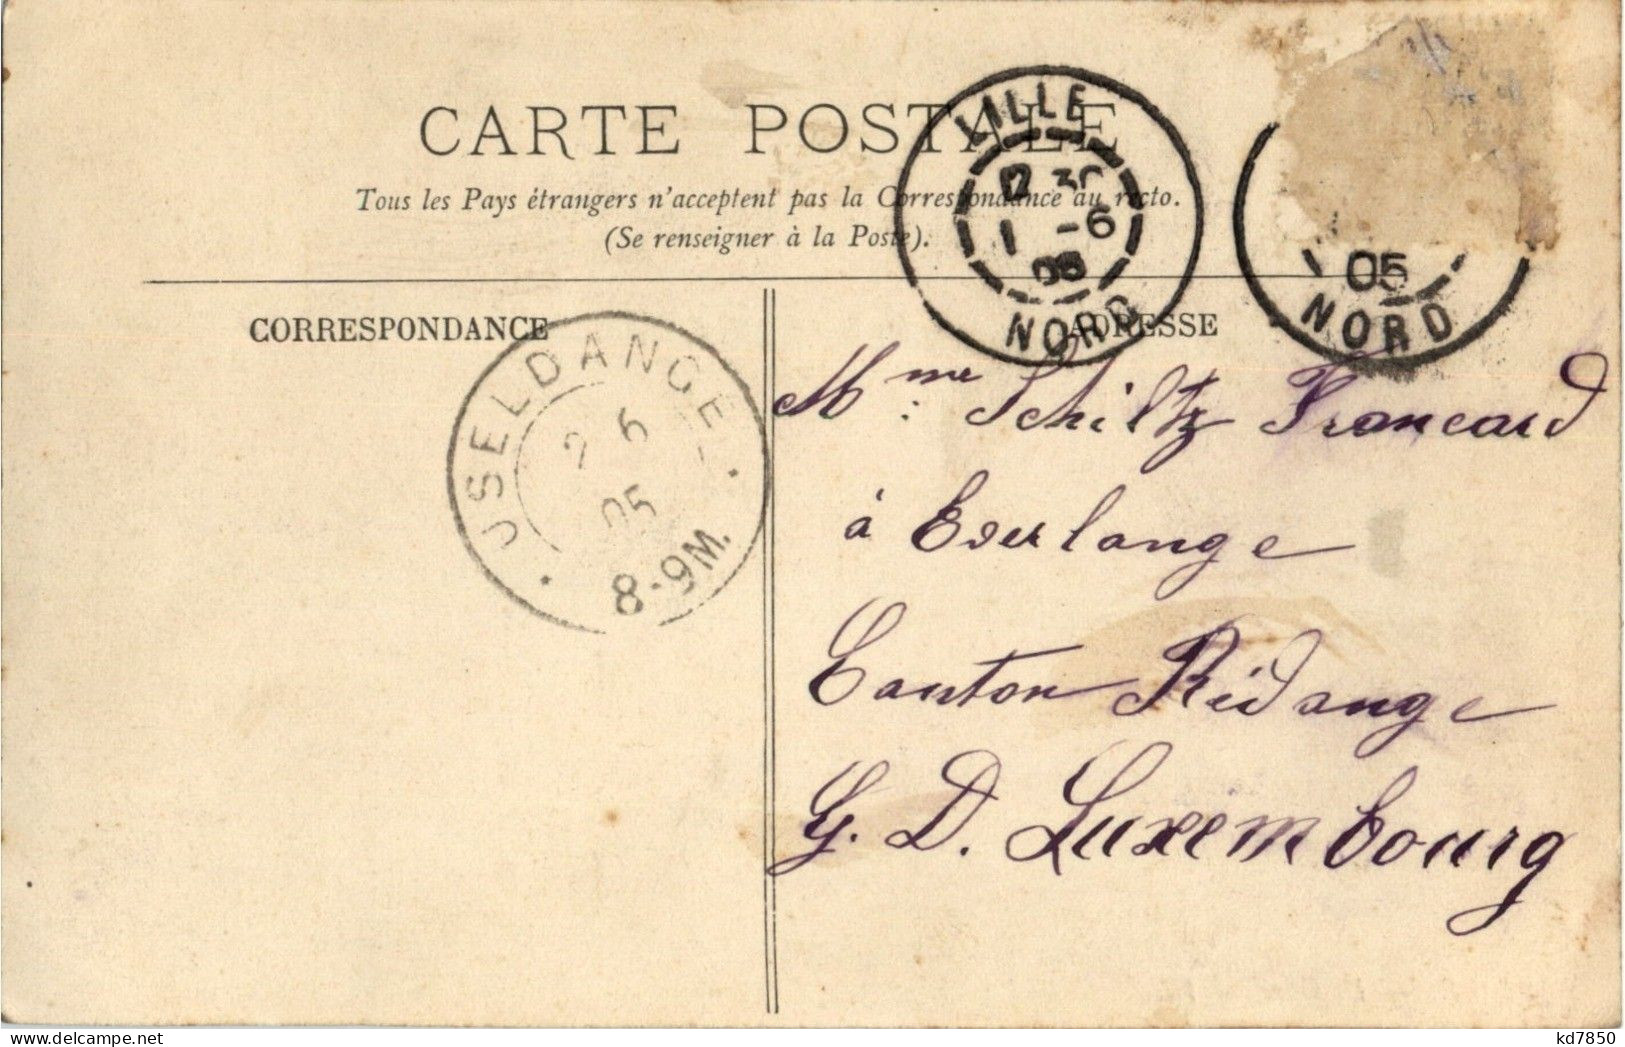 CARTE POSTALE
Tous les Pays étrangers n'acceptent pas la Correspondance au recto.
(Se renseigner à la Poste).
CORRESPONDANCE
ADRESSE
LILLE
12 30
1 -6
05
NORD
05
NORD
USELDANGE
2 6
05
8-9M.
Mme Schiltz Francard
à Everlange
Canton Rédange
G. D. Luxembourg
kd7850